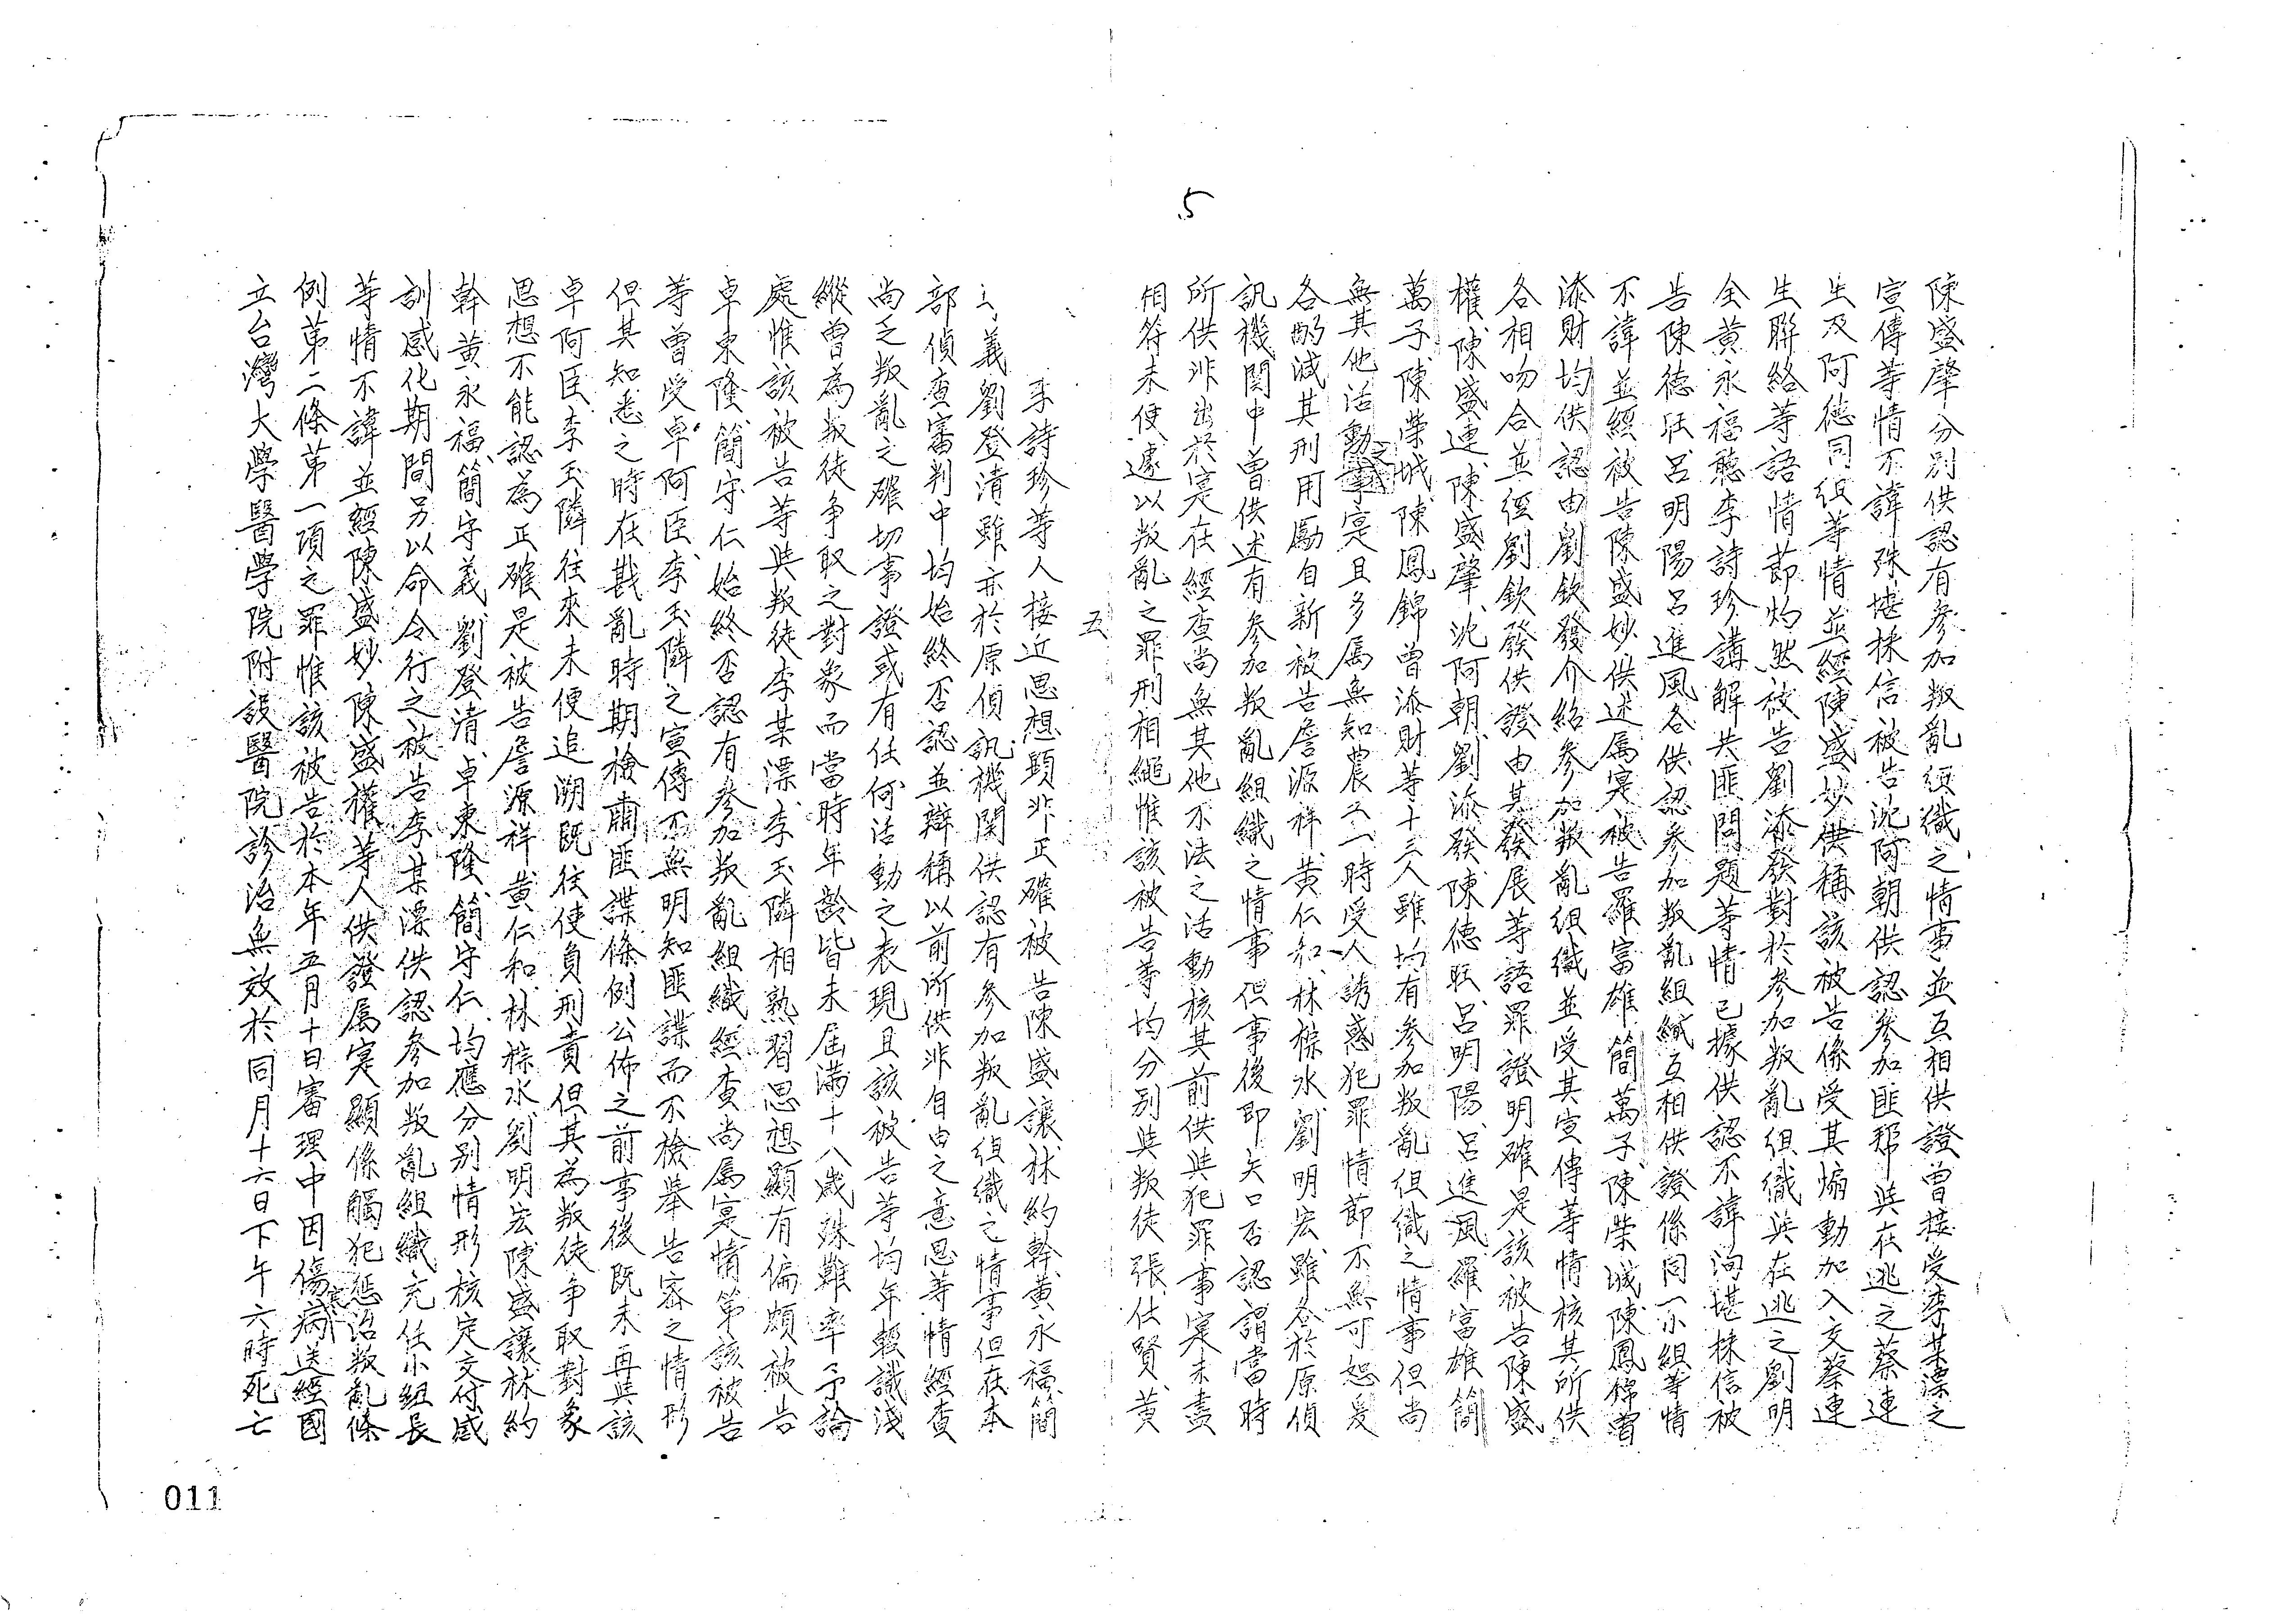 5
陳盛肇分別供認有參加叛亂組織之情事並互相供證曾接受李某漂之
宣傳等情不諱殊堪採信被告沈阿朝供認參加匪幫與在逃之蔡連
生及阿德同組等情並經陳盛妙供稱該被告係受其煽動加入交蔡連
生聯絡等語情節灼然被告劉添發對於參加叛亂組織與在逃之劉明
全黃永福聽李詩珍講解共匪問題等情已據供認不諱洵堪採信被
告陳德旺呂明陽呂進風各供認參加叛亂組織互相供證係同一小組等情
不諱並經被告陳盛妙供述屬實被告羅富雄簡萬子陳榮城陳鳳錦曾
添財均供認由劉欽發介紹參加叛亂組織並受其宣傳等情核其所供
各相吻合並經劉欽發供證由其發展等語罪證明確是該被告陳盛
權陳盛連陳盛肇沈阿朝劉添發陳德旺呂明陽呂進風羅富雄簡
萬子陳榮城陳鳳錦曾添財等十三人雖均有參加叛亂組織之情事但尚
無其他活動之事實且多屬無知農工一時受人誘惑犯罪情節不無可恕爰
各酌減其刑用勵自新被告詹源祥黃仁和林棕水劉明宏雖各於原偵
訊機関中曾供述有參加叛亂組織之情事但事後即矢口否認謂當時
所供非出於實在經查尚無其他不法之活動核其前供與犯罪事實未盡
相符未便遽以叛亂之罪刑相繩惟該被告等均分別與叛徒張仕賢黃
五
李詩珍等人接近思想顯非正確被告陳盛讓林約幹黃永福簡
守義劉登清雖亦於原偵訊機関供認有參加叛亂組織之情事但在本
部偵查審判中均始終否認並辯稱以前所供非自由之意思等情經查
尚乏叛亂之確切事證或有任何活動之表現且該被告等均年輕識淺
縱曾為叛徒爭取之對象而當時年齡皆未屆滿十八歲殊難率予論
處惟該被告等與叛徒李某漂李玉隣相熟習思想顯有偏頗被告
卓東隆簡守仁始終否認有參加叛亂組織經查尚屬實情第該被告
等曾受卓阿臣李玉隣之宣傳不無明知匪諜而不檢舉告密之情形
但其知悉之時在戡亂時期檢肅匪諜條例公佈之前事後既未再與該
卓阿臣李玉隣往來未便追溯既往使負刑責但其為叛徒爭取對象
思想不能認為正確是被告詹源祥黃仁和林棕水劉明宏陳盛讓林約
幹黃永福簡守義劉登清卓東隆簡守仁均應分別情形核定交付感
訓感化期間另以命令行之被告李某漂供認參加叛亂組織充任小組長
等情不諱並經陳盛妙陳盛權等人供證屬實顯係觸犯懲治叛亂條
例第二條第一項之罪惟該被告於本年五月十日審理中因傷寒病送經國
立台灣大學醫學院附設醫院診治無效於同月十六日下午六時死亡
011